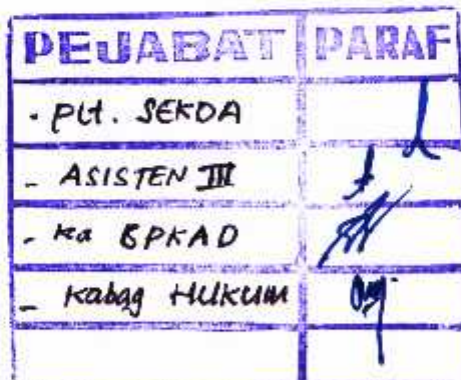 PEJABAT PARAF
- Plt. SEKDA
- ASISTEN III
- Ka BPKAD
- Kabag HUKUM